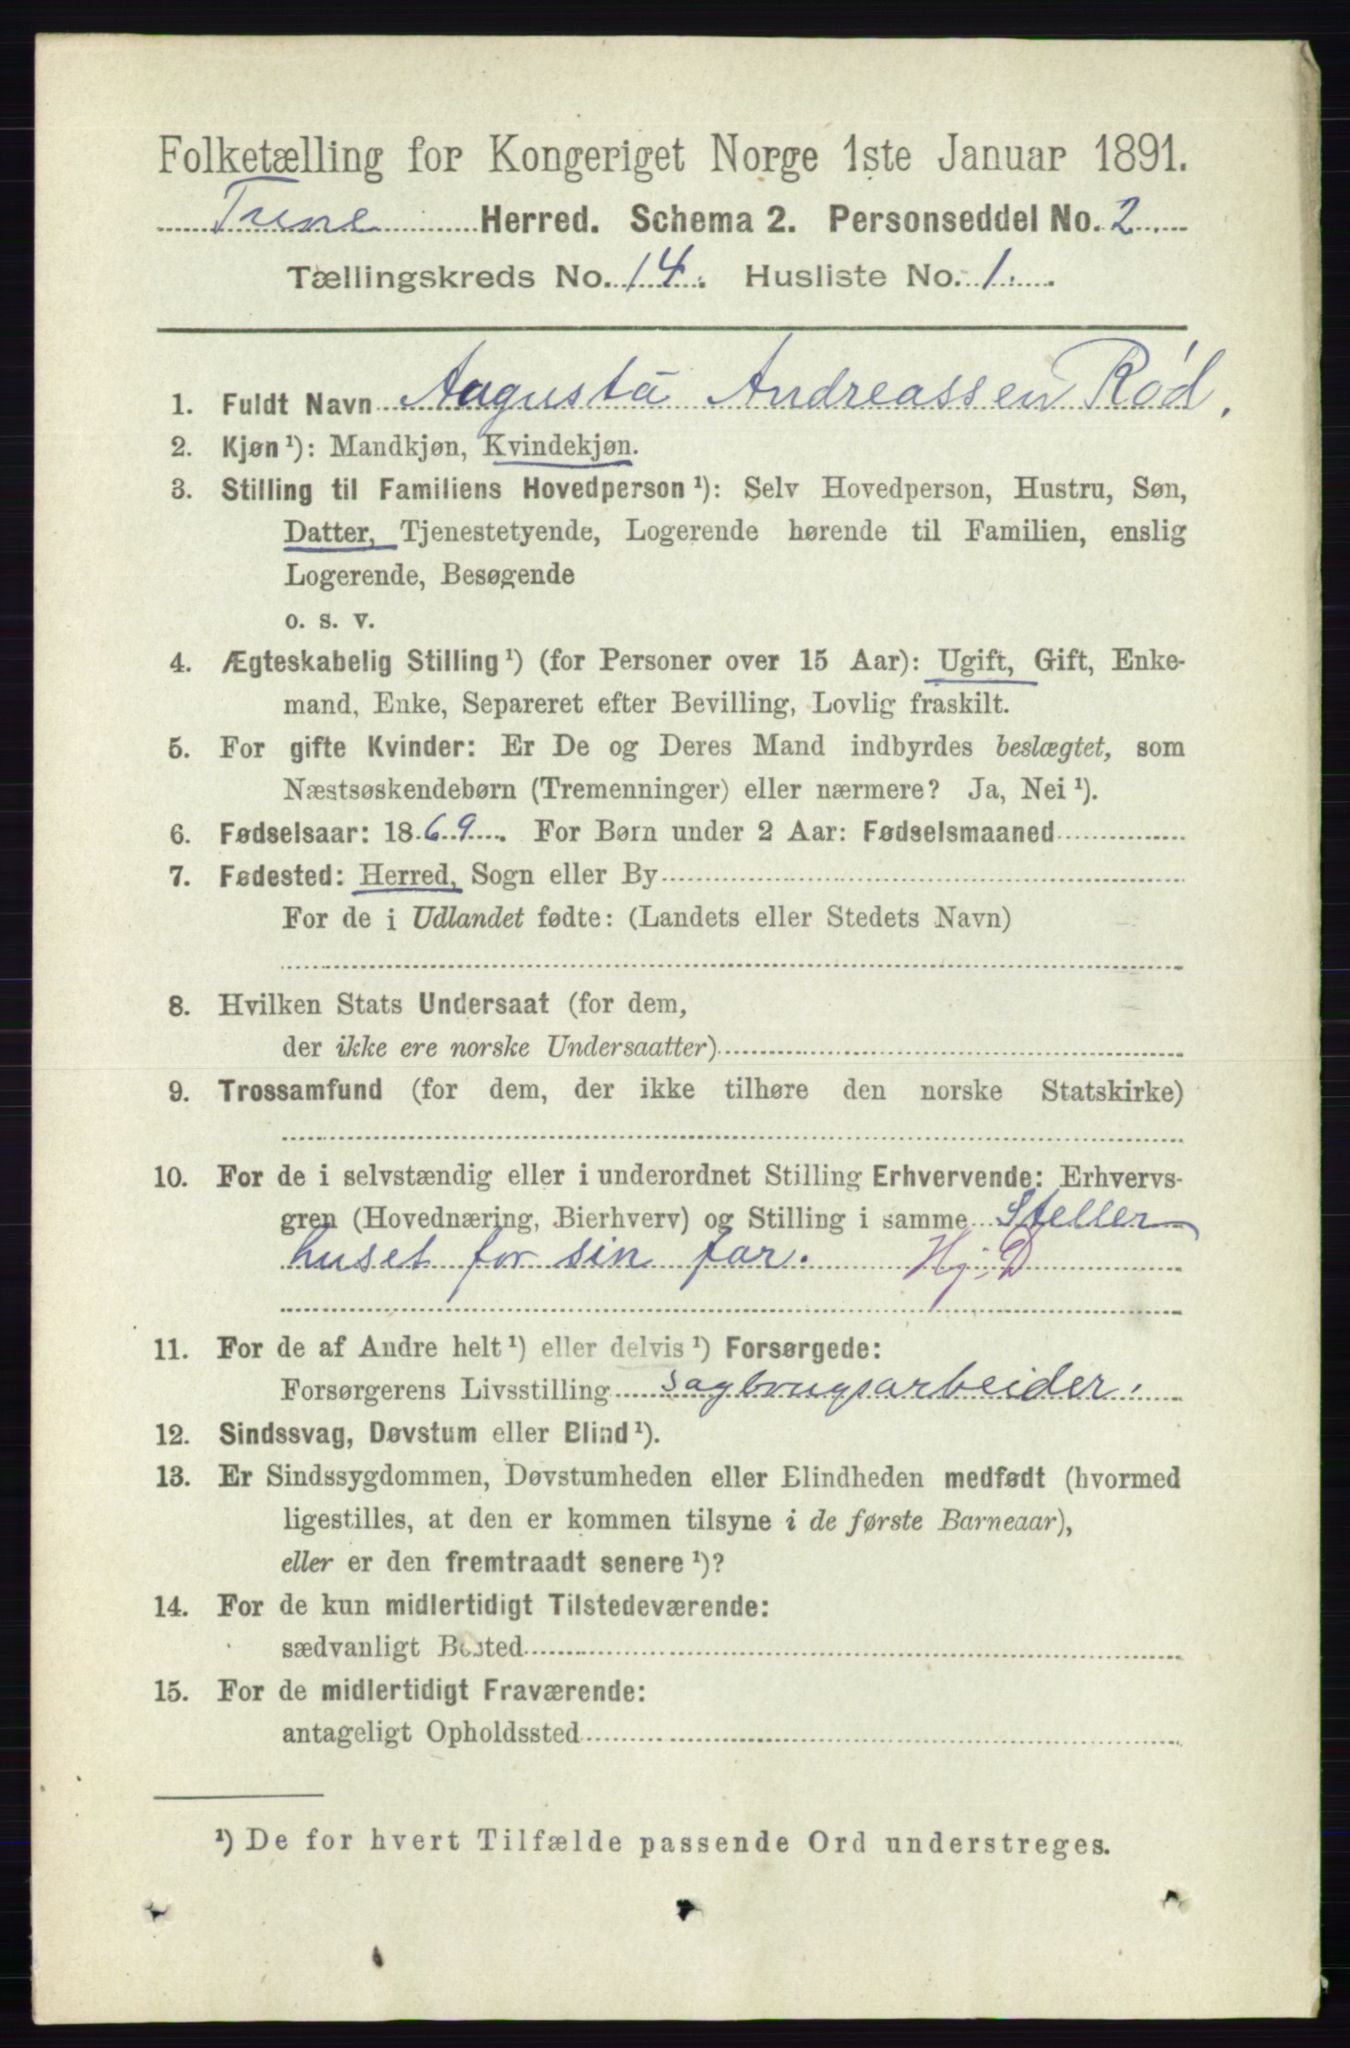 Folketælling for Kongeriget Norge 1ste Januar 1891.
Tune Herred. Schema 2. Personseddel No. 2
Tællingskreds No. 14. Husliste No. 1.
1. Fuldt Navn Augusta Andreassen Rød.
2. Kjøn ¹): Mandkjøn, Kvindekjøn.
3. Stilling til Familiens Hovedperson ¹): Selv Hovedperson, Hustru, Søn,
Datter, Tjenestetyende, Logerende hørende til Familien, enslig
Logerende, Besøgende
o. s. v.
4. Ægteskabelig Stilling ¹) (for Personer over 15 Aar): Ugift, Gift, Enke-
mand, Enke, Separeret efter Bevilling, Lovlig fraskilt.
5. For gifte Kvinder: Er De og Deres Mand indbyrdes beslægtet, som
Næstsøskendebørn (Tremenninger) eller nærmere? Ja, Nei ¹).
6. Fødselsaar: 1869. For Børn under 2 Aar: Fødselsmaaned
7. Fødested: Herred, Sogn eller By
For de i Udlandet fødte: (Landets eller Stedets Navn)
8. Hvilken Stats Undersaat (for dem,
der ikke ere norske Undersaatter)
9. Trossamfund (for dem, der ikke tilhøre den norske Statskirke)
10. For de i selvstændig eller i underordnet Stilling Erhvervende: Erhvervs-
gren (Hovednæring, Bierhverv) og Stilling i samme Steller
huset for sin far. Hj. D
11. For de af Andre helt ¹) eller delvis ¹) Forsørgede:
Forsørgerens Livsstilling sagbrugsarbeider.
12. Sindssvag, Døvstum eller Blind ¹).
13. Er Sindssygdommen, Døvstumheden eller Blindheden medfødt (hvormed
ligestilles, at den er kommen tilsyne i de første Barneaar),
eller er den fremtraadt senere ¹)?
14. For de kun midlertidigt Tilstedeværende:
sædvanligt Bosted
15. For de midlertidigt Fraværende:
antageligt Opholdssted
¹) De for hvert Tilfælde passende Ord understreges.